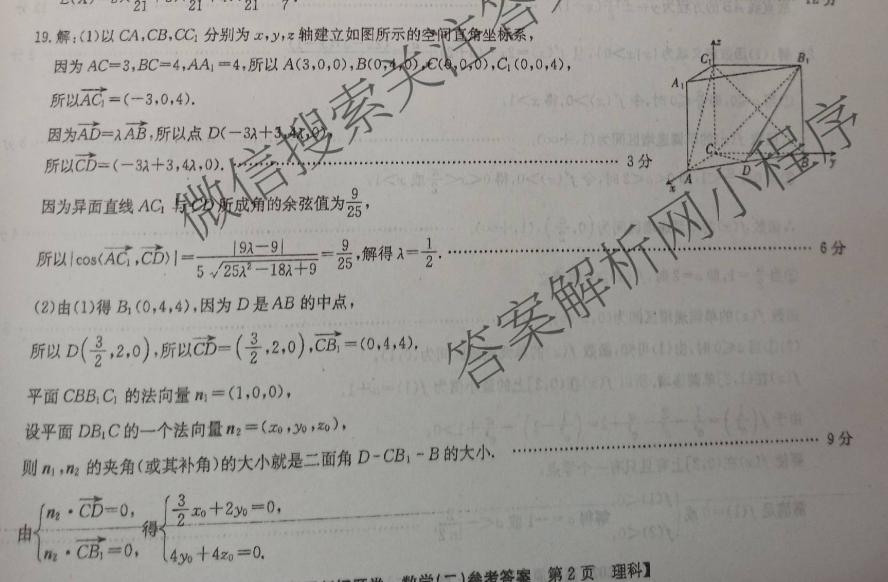 19.解:(1)以CA,CB,CC₁分别为x,y,z轴建立如图所示的空间直角坐标系,
因为AC=3,BC=4,AA₁=4,所以A(3,0,0),B(0,4,0),C(0,0,0),C₁(0,0,4),
所以$\overrightarrow{AC_1}$=(-3,0,4).
因为$\overrightarrow{AD}$=λ$\overrightarrow{AB}$,所以点D(-3λ+3,4λ,0),
所以$\overrightarrow{CD}$=(-3λ+3,4λ,0). …… 3分
因为异面直线AC₁与CD所成角的余弦值为$\frac{9}{25}$,
所以|cos⟨$\overrightarrow{AC_1}$,$\overrightarrow{CD}$⟩|=$\frac{|9λ-9|}{5\sqrt{25λ^2-18λ+9}}$=$\frac{9}{25}$,解得λ=$\frac{1}{2}$. …… 6分
(2)由(1)得B₁(0,4,4),因为D是AB的中点,
所以D($\frac{3}{2}$,2,0),所以$\overrightarrow{CD}$=($\frac{3}{2}$,2,0),$\overrightarrow{CB_1}$=(0,4,4).
平面CBB₁C₁的法向量n₁=(1,0,0),
设平面DB₁C的一个法向量n₂=(x₀,y₀,z₀),
则n₁,n₂的夹角(或其补角)的大小就是二面角D-CB₁-B的大小. …… 9分
由{n₂·$\overrightarrow{CD}$=0, 得{$\frac{3}{2}$x₀+2y₀=0,
n₂·$\overrightarrow{CB_1}$=0, 4y₀+4z₀=0.
数学(二)参考答案 第2页 理科】
z
C₁
B₁
A₁
C
A
D
B
x
y
微信搜索关注答
答案解析网小程序